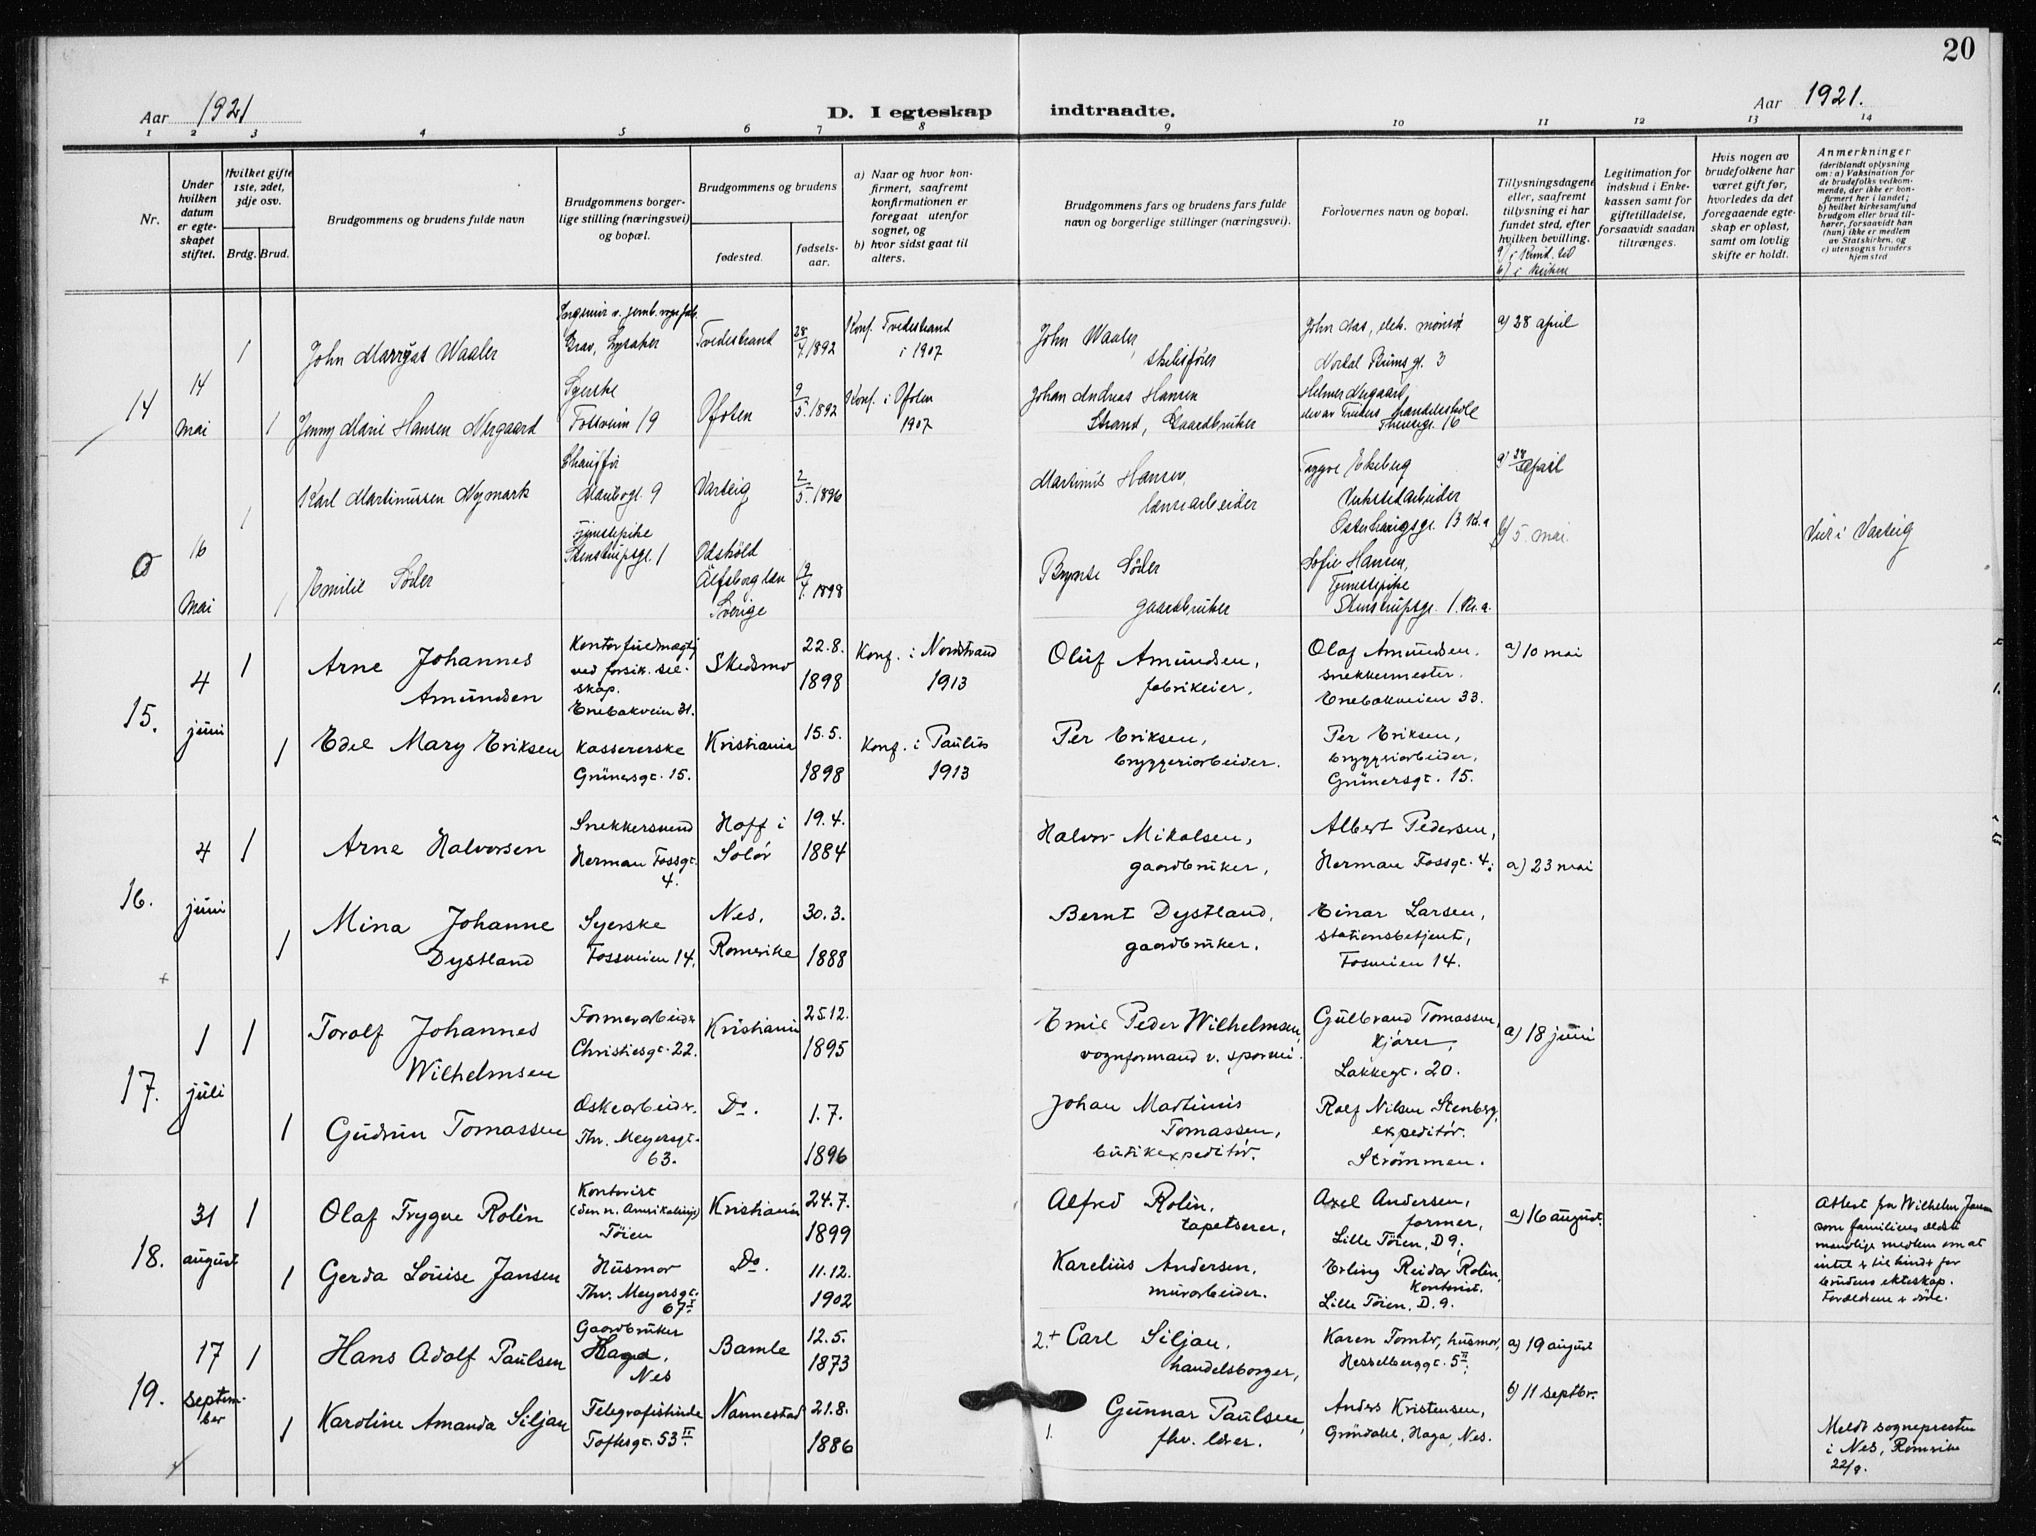 20
Aar 1921
D. I egteskap indtraadte.
Aar 1921.
1 2 3 4 5 6 7 8 9 10 11 12 13 14
Nr.
Under hvilken datum er egteskapet stiftet.
Hvilket gifte 1ste, 2det, 3dje osv.
Brdg. Brud.
Brudgommens og brudens fulde navn
Brudgommens borgerlige stilling (næringsvei) og bopæl.
Brudgommens og brudens
fødested.
fødsels-aar.
a) Naar og hvor konfirmert, saafremt konfirmationen er foregaat utenfor sognet, og
b) hvor sidst gaat til alters.
Brudgommens fars og brudens fars fulde navn og borgerlige stillinger (næringsvei).
Forlovernes navn og bopæl.
Tillysningsdagene eller, saafremt tillysning ei har fundet sted, efter hvilken bevilling.
Legitimation for indskud i Enkekassen samt for giftetilladelse, forsaavidt saadan tiltrænges.
Hvis nogen av brudefolkene har været gift før, hvorledes da det foregaaende egteskap er opløst, samt om lovlig skifte er holdt.
Anmerkninger
(deriblandt oplysning om: a) Vaksination for de brudefolks vedkommende, der ikke er konfirmert her i landet; b) hvilket kirkesamfund brudgom eller brud tilhører, forsaavidt han (hun) ikke er medlem av Statskirken, og c) utensogns bruders hjemsted
14
14 mai
1
John Marryat Waaler
Grav, Lysaker
Tvedestrand
28/4. 1892
Konf. Tvedestrand i 1907
John Waaler, skibsfører
a) 28 april
1
Jenny Marie Hansen Nergaard
Syerske
Fossvein 19
Ofoten
9/5. 1892
Konf. i Ofoten 1907
Johan Andreas Hansen Strand, Gaardbruker
Helmer Nergaard,
0
16 Mai
1
Karl Martinussen Nymark
Chauffør
9
Varteig
2/5. 1896
Martinus Hansen,
Trygve Ekeberg
Verkstedarbeider
Osterhausgt. 13 Kr.a
28 april
b) 5. mai.
Viet i Varteig
1
Emilie Söder
Tjenestepike
Stenstrupsgt. 1
Ödsköld
Älfsborg län
Sverige
9/4. 1898
Brynte Söder
gaardbruker
Sofie Hansen,
Tjenestepike
Stenstrupsgt. 1. Kr.a.
15.
4 juni
1
Arne Johannes Amundsen
Kontorfuldmægtig ved forsik. selskap.
Enebakveien 31.
Skedsmo
22.8. 1898
Konf. i Nordstrand 1913
Oluf Amundsen, fabrikeier.
Olaf Amundsen. snekkermester.
Enebakveien 33.
a) 10 mai
1
Edel Mary Eriksen
Kassererske
Grünersgt. 15.
Kristiania
15.5. 1898
Konf. i Paulus 1913
Per Eriksen, bryggeriarbeider.
Per Eriksen, bryggeriarbeider,
Grünersgt. 15.
16.
4 juni
1
Arne Halvorsen
Snekkersvend
Herman Fossgt. 4.
Hoff i Solør
19.4. 1884
Halvor Mikalsen, gaardbruker,
Albert Pedersen,
Herman Fossgt. 4.
a) 23 mai
1
Mina Johanne Dystland
Syerske
Fossveien 14.
Nes, Romerike
30.3. 1888
Bernt Dystland, gaardbruker.
Einar Larsen, stationsbetjent,
Fosveien 14.
17.
1 juli
1
Torolf Johannes Wilhelmsen
Formerarbeider
Christiesgt. 22.
Kristiania
25.12. 1895
Emil Peder Wilhelmsen, vognformand v. sporvei.
Gulbrand Tomassen, kjører,
Lakkegt. 20.
a) 18 juni
1
Gudrun Tomassen
Æskearbeider.
Thv. Meyersgt. 63.
Do.
1.7. 1896
Johan Martinius Tomassen, butikexpeditør.
Rolf Nilsen Stenberg, expeditør.
Strømmen.
18.
31 august
1
Olaf Trygve Rolén
Kontorist (den n. Amerikalinje)
Tøien
Kristiania
24.7. 1899
Alfred Rolén, tapetserer,
Axel Andersen, former,
Lille Tøien, D 9.
a) 16 august.
Attest fra Wilhelm Jansen som familiens ældste mandlige medlem om at intet er til hinder for brudens ekteskap. Forældrene er døde.
1
Gerda Louise Jansen
Husmor
Thv. Meyersgt. 67 I
Do.
11.12. 1902
Karelius Andersen, murarbeider.
Erling Reidar Rolén, Kontorist.
Lille Tøien, D. 9.
19.
17 september
1
Hans Adolf Paulsen
Gaardbruker
Haga, Nes
Bamle
12.5. 1873
2. + Carl Siljan, handelsborger,
Karen Tomter, husmor,
Hesselberggt. 5 II.
a) 19 august
b) 11 septbr.
1
Karoline Amanda Siljan
Telegrafistinde
Toftesgt. 53 II.
Nannestad
21.8. 1886
1. Gunnar Paulsen, fhv. lærer.
Anders Kristensen,
Grøndahl, Haga, Nes.
Meldt sognepresten i Nes, Romerike 22/9.